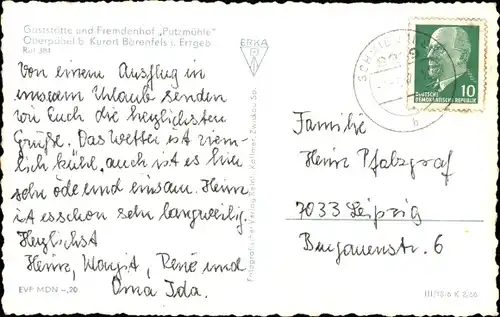 Gaststätte und Fremdenhof „Putzmühle"
Oberpöbel b. Kurort Bärenfels i. Erzgeb.
Ruf
ERKA
Von einem Ausflug in
unserem Urlaub senden
wir Euch die herzlichsten
Grüße. Das Wetter ist ziem-
lich kühl, auch ist es hier
sehr öde und einsam. Heinz
ist es schon sehr langweilig.
Herzlichst
Heinz, Margit, René und
Oma Ida.
EVP MDN –,20
Fotografischer Verlag
10
DEUTSCHE
DEMOKRATISCHE REPUBLIK
b
Familie
Heinz Pfalzgraf
7033 Leipzig
Burgauenstr. 6
III/18/6 K 2/66